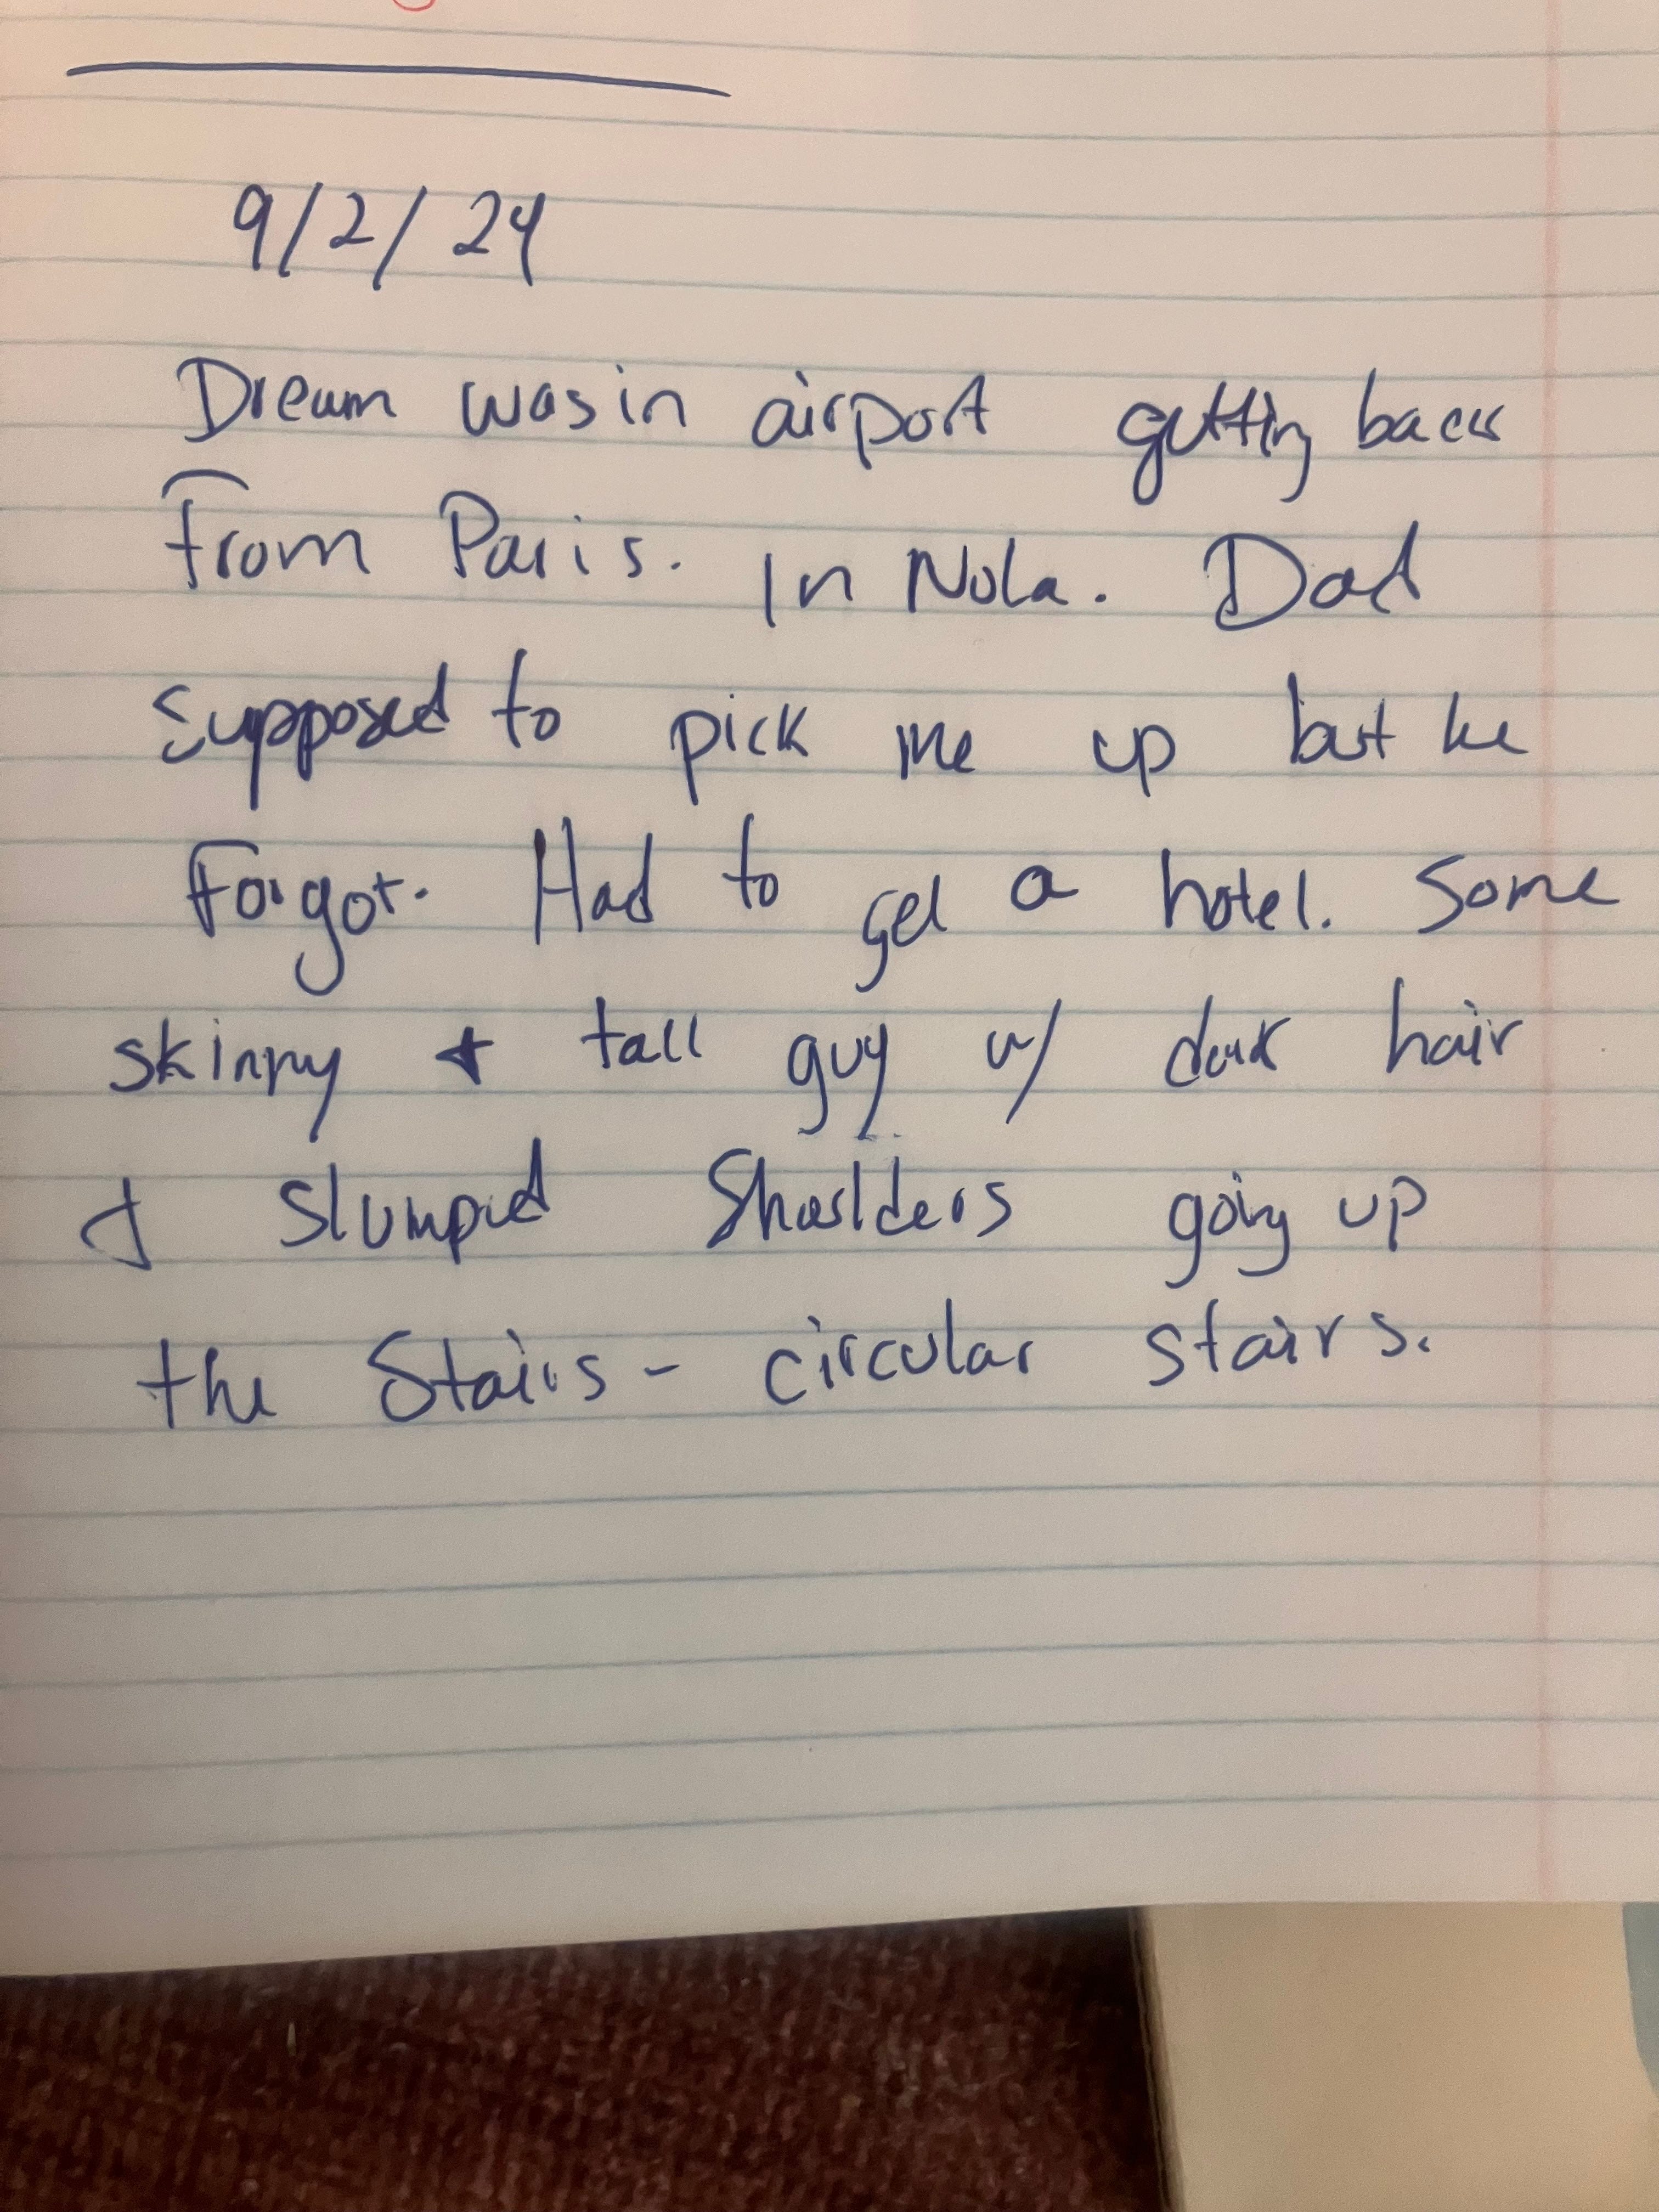 9/2/24
Dream was in airport getting back
From Paris. In Nola. Dad
supposed to pick me up but he
Forgot. Had to get a hotel. Some
skinny & tall guy w/ dark hair
& slumped Shoulders going up
the Stairs - circular stairs.